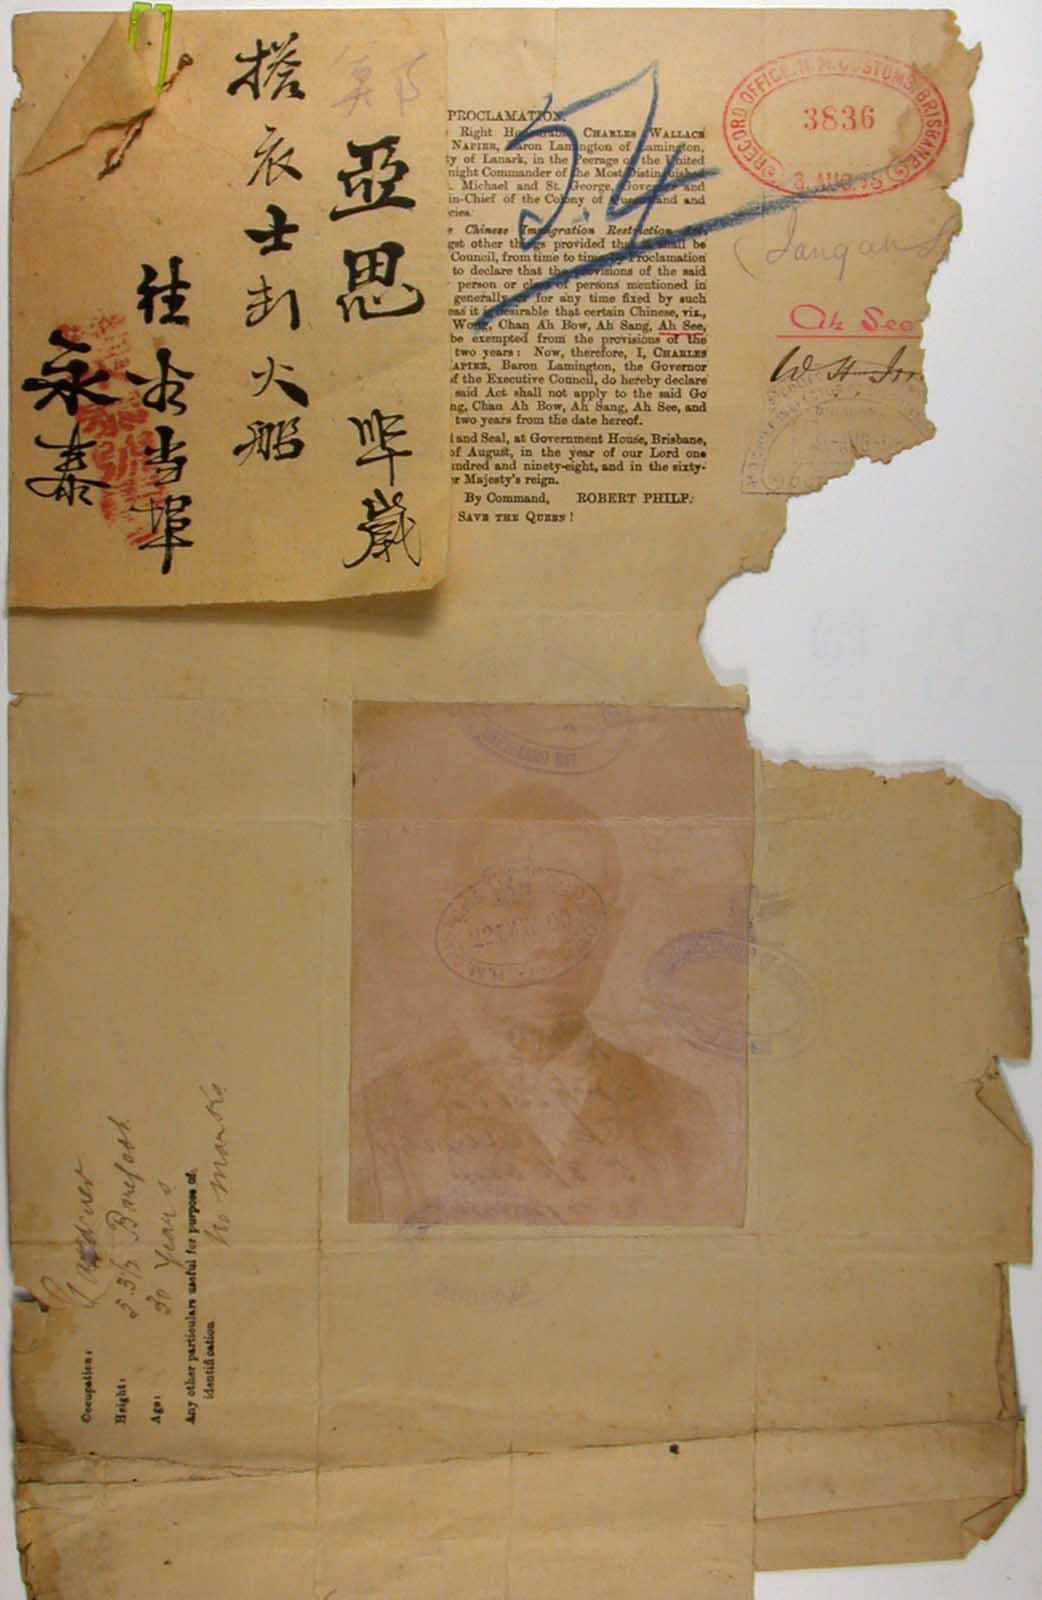 亞思
搭衣士剖火船
往
當埠
永泰
PROCLAMATION.
Right Honourable CHARLES WALLACE
NAPIER, Baron Lamington of Lamington,
ty of Lanark, in the Peerage of the United
night Commander of the Most Distinguished
. Michael and St. George, Governor and
in-Chief of the Colony of Queensland and
cies.
e Chinese Immigration Restriction Act,
gst other things provided that it shall be
Council, from time to time, by Proclamation
to declare that the provisions of the said
person or class of persons mentioned in
generally or for any time fixed by such
eas it is desirable that certain Chinese, viz.,
Wong, Chan Ah Bow, Ah Sang, Ah See,
be exempted from the provisions of the
two years: Now, therefore, I, CHARLES
APIER, Baron Lamington, the Governor
of the Executive Council, do hereby declare
said Act shall not apply to the said Go
ng, Chan Ah Bow, Ah Sang, Ah See, and
two years from the date hereof.
l and Seal, at Government House, Brisbane,
of August, in the year of our Lord one
undred and ninety-eight, and in the sixty-
r Majesty's reign.
By Command, ROBERT PHILP.
SAVE THE QUEEN!
54
RECORD OFFICE, H.M. CUSTOMS, BRISBANE
3836
3 AUG. 98
Ah See
Occupation: Gardener
Height: 5.3½ Barefoot
Age: 30 Years
Any other particulars useful for purpose of
identification No Marks